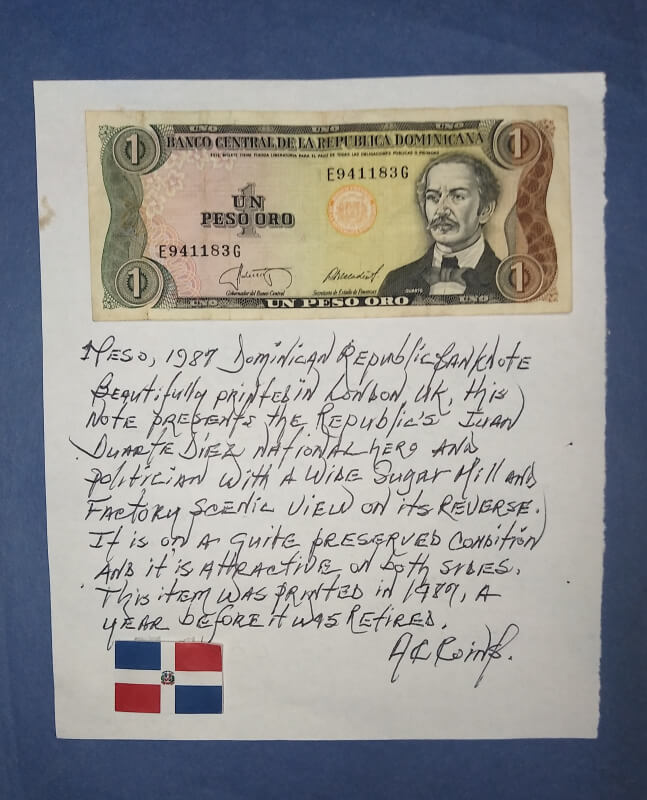 UNO UNO UNO
1 BANCO CENTRAL DE LA REPUBLICA DOMINICANA 1
ESTE BILLETE TIENE FUERZA LIBERATORIA PARA EL PAGO DE TODAS LAS OBLIGACIONES PUBLICAS O PRIVADAS
E941183G
1
UN
PESO ORO
E941183G
Gobernador del Banco Central Secretario de Estado de Finanzas
DUARTE
1 UNO UN PESO ORO UNO 1
1 Peso, 1987 Dominican Republic Banknote
Beautifully printed in London, UK, this
note presents the Republic's Juan
Duarte Díez national hero and
politician with a wide Sugar Mill and
Factory scenic view on its reverse.
It is on a quite preserved condition
and it is attractive on both sides.
This item was printed in 1987, a
year before it was retired.
A C Coins.